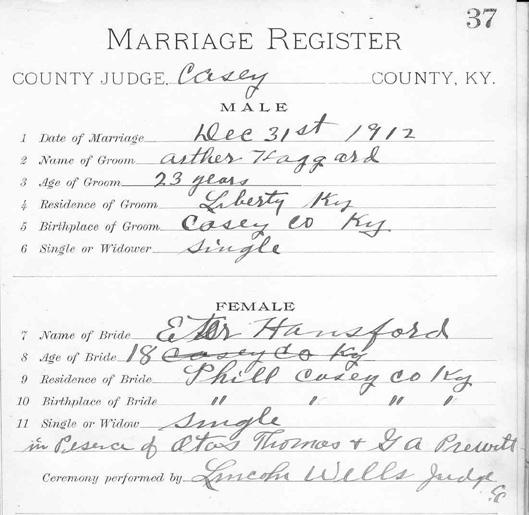 37
MARRIAGE REGISTER
COUNTY JUDGE, Casey COUNTY, KY.
MALE
1 Date of Marriage Dec 31st 1912
2 Name of Groom arther Haggard
3 Age of Groom 23 years
4 Residence of Groom Liberty Ky
5 Birthplace of Groom Casey Co Ky.
6 Single or Widower Single
FEMALE
7 Name of Bride Hansford
8 Age of Bride 18 Casey Co Ky
9 Residence of Bride Phill Casey Co Ky
10 Birthplace of Bride " " " "
11 Single or Widow Single
in Pesence of Thomas + G A Prewitt
Ceremony performed by Lincoln Wells Judge